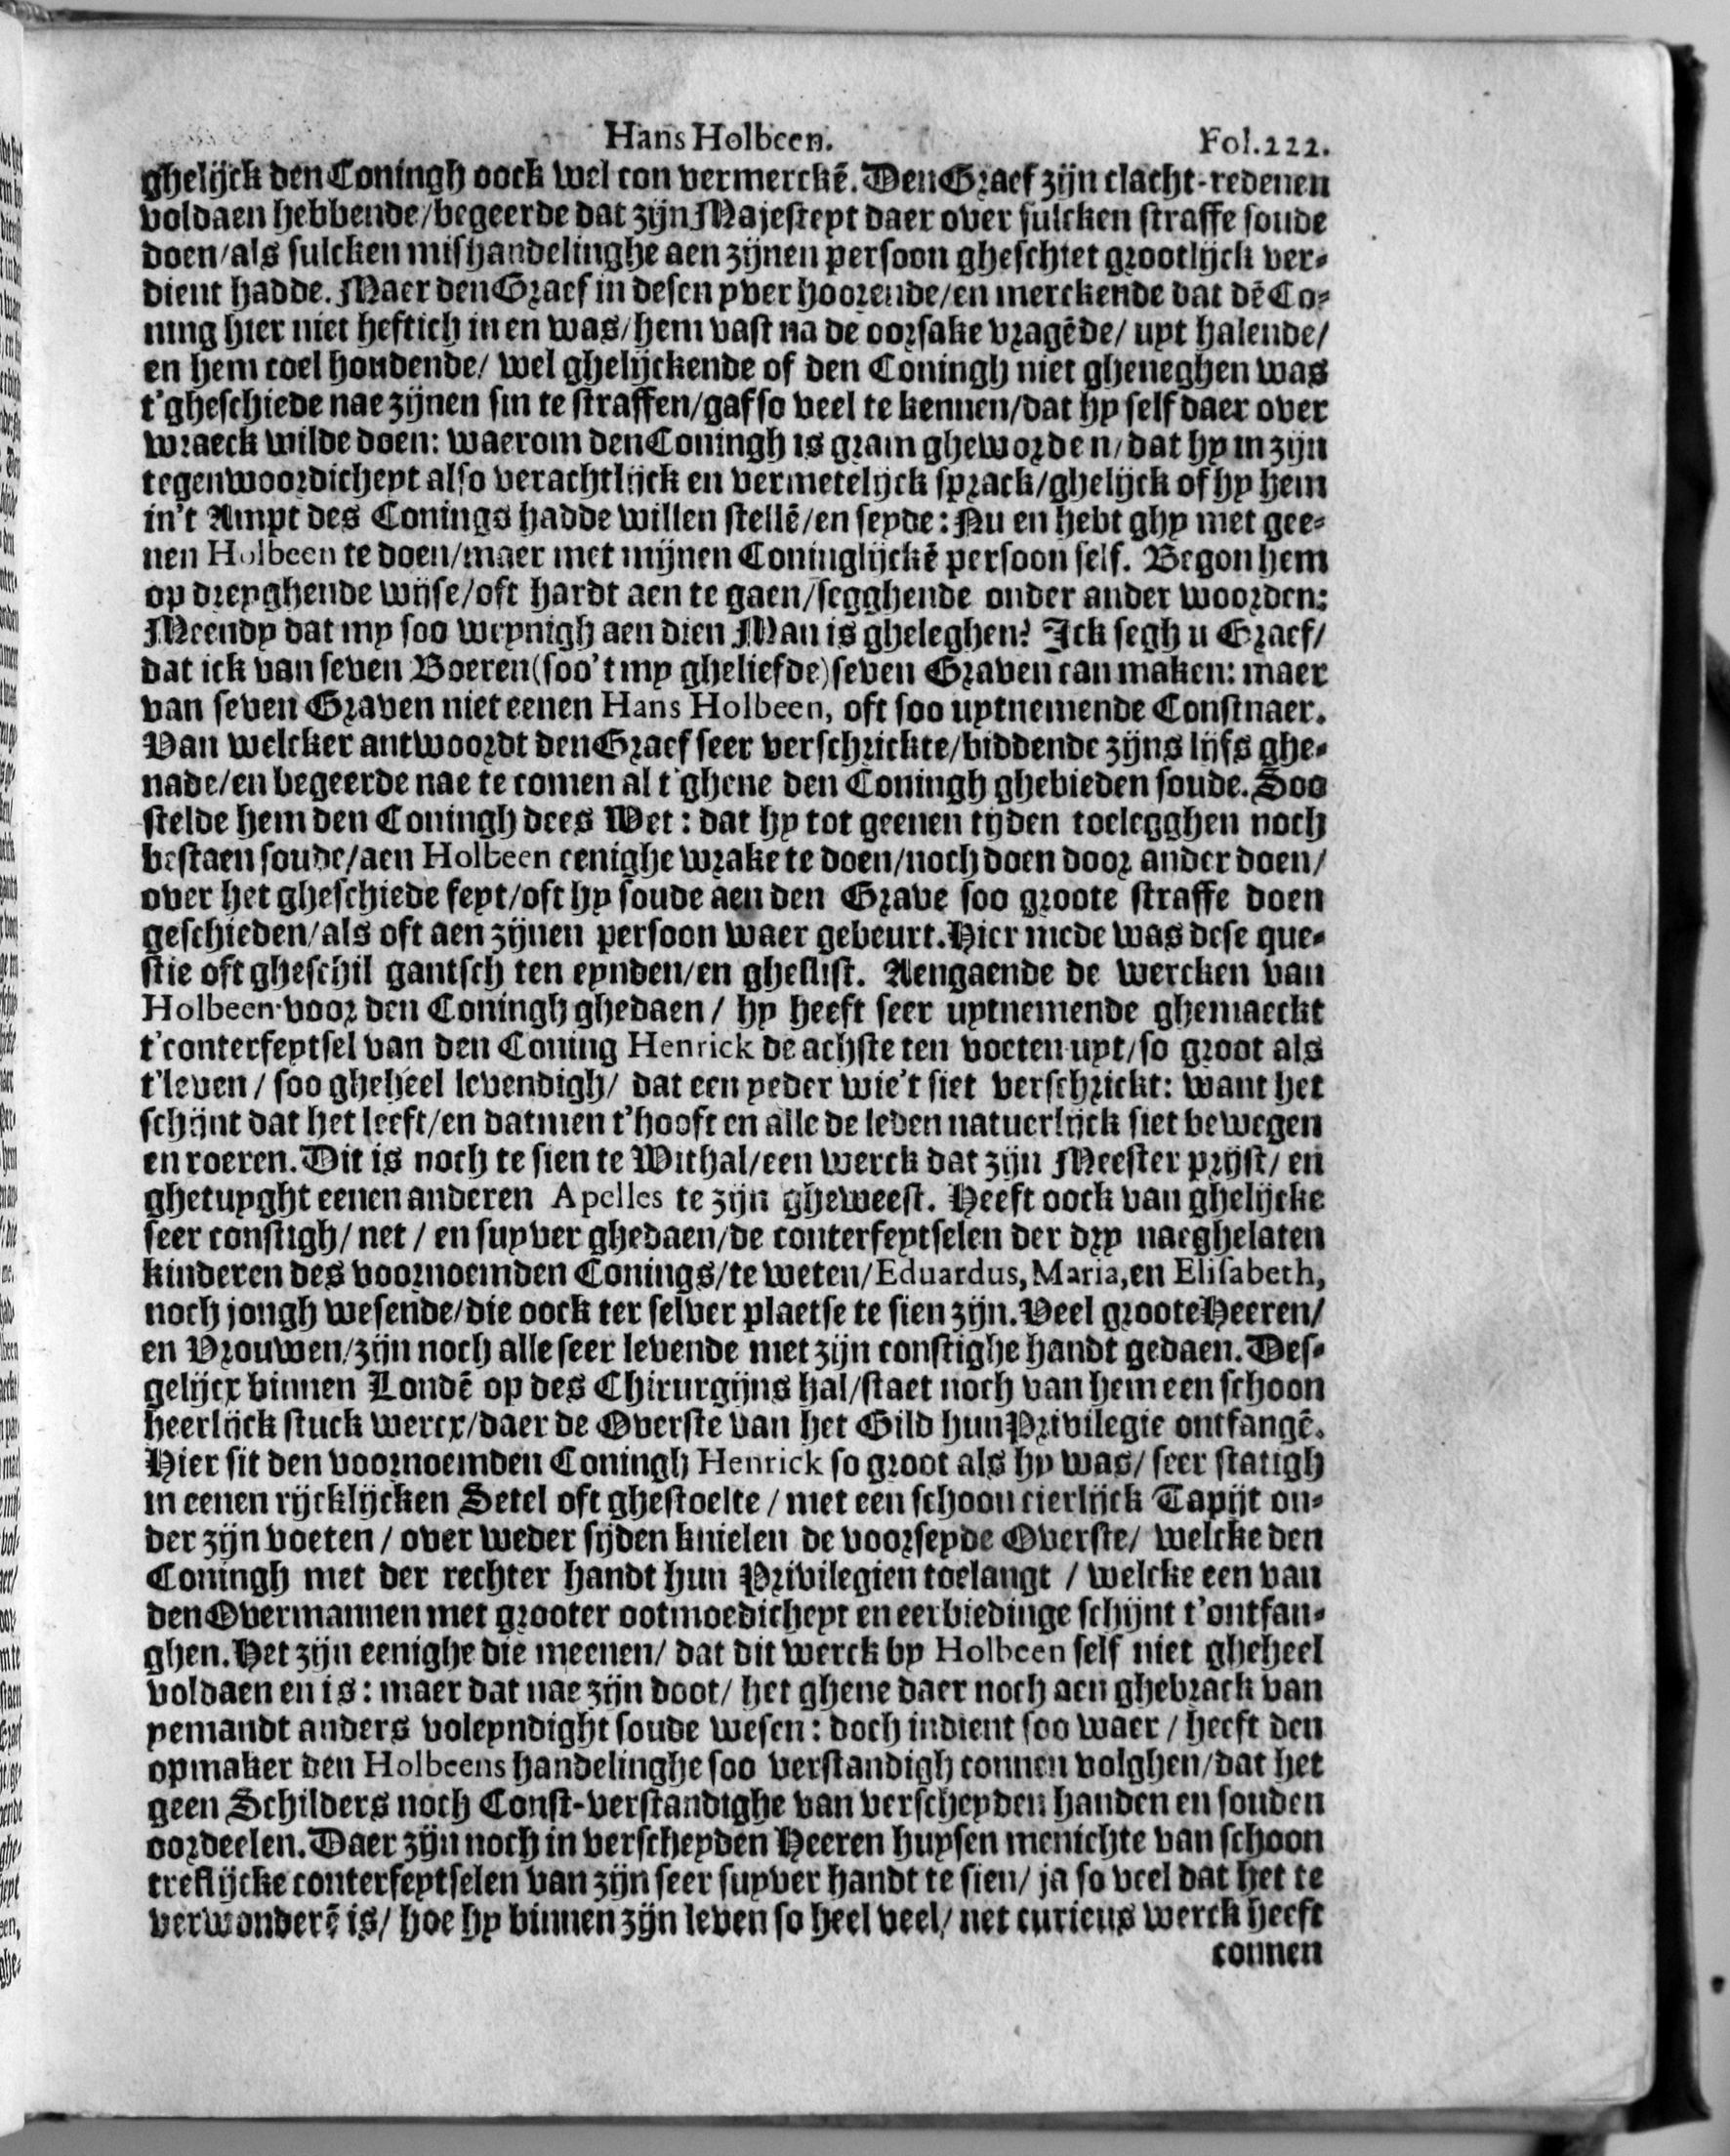 Hans Holbeen. Fol.222.
ghelijck den Coningh oock wel con vermerckē. Den Graef zijn clacht-redenen
voldaen hebbende/begeerde dat zijn Majesteyt daer over sulcken straffe soude
doen/als sulcken mishandelinghe aen zijnen persoon gheschiet grootlijck ver-
dient hadde. Maer den Graef in desen yver hoorende/en merckende dat dē Co-
ning hier niet heftich in en was/hem vast na de oorsake vragēde/ uyt halende/
en hem coel houdende/ wel ghelijckende of den Coningh niet gheneghen was
t'gheschiede nae zijnen sin te straffen/gaf so veel te kennen/dat hy self daer over
wraeck wilde doen: waerom den Coningh is gram gheworden/dat hy in zijn
tegenwoordicheyt also verachtlijck en vermetelijck sprack/ghelijck of hy hem
in't Ampt des Conings hadde willen stellē/en seyde: Nu en hebt ghy met gee-
nen Holbeen te doen/maer met mijnen Coninglijckē persoon self. Begon hem
op dreyghende wijse/oft hardt aen te gaen/segghende onder ander woorden:
Meendy dat my soo weynigh aen dien Man is gheleghen? Ick segh u Graef/
dat ick van seven Boeren(soo't my gheliefde)seven Graven can maken: maer
van seven Graven niet eenen Hans Holbeen, oft soo uytnemende Constnaer.
Van welcker antwoordt den Graef seer verschrickte/biddende zijns lijfs ghe-
nade/en begeerde nae te comen al t'ghene den Coningh ghebieden soude. Soo
stelde hem den Coningh dees Wet: dat hy tot geenen tijden toelegghen noch
bestaen soude/aen Holbeen eenighe wrake te doen/noch doen door ander doen/
over het gheschiede feyt/oft hy soude aen den Grave soo groote straffe doen
geschieden/als oft aen zijnen persoon waer gebeurt. Hier mede was dese que-
stie oft gheschil gantsch ten eynden/en gheslist. Aengaende de wercken van
Holbeen voor den Coningh ghedaen/ hy heeft seer uytnemende ghemaeckt
t'conterfeytsel van den Coning Henrick de achste ten voeten uyt/so groot als
t'leven/ soo gheheel levendigh/ dat een yeder wie't siet verschrickt: want het
schijnt dat het leeft/en datmen t'hooft en alle de leden natuerlijck siet bewegen
en roeren. Dit is noch te sien te Withal/een werck dat zijn Meester prijst/ en
ghetuyght eenen anderen Apelles te zijn gheweest. Heeft oock van ghelijcke
seer constigh/ net/ en suyver ghedaen/de conterfeytselen der dry naeghelaten
kinderen des voornoemden Conings/te weten/Eduardus, Maria,en Elisabeth,
noch jongh wesende/die oock ter selver plaetse te sien zijn. Veel groote Heeren/
en Vrouwen/zijn noch alle seer levende met zijn constighe handt gedaen. Des-
gelijcx binnen Londē op des Chirurgijns hal/staet noch van hem een schoon
heerlijck stuck wercx/daer de Overste van het Gild hun Privilegie ontfangē.
Hier sit den voornoemden Coningh Henrick so groot als hy was/ seer statigh
in eenen rijcklijcken Setel oft ghestoelte/ met een schoon cierlijck Tapijt on-
der zijn voeten/ over weder sijden knielen de voorseyde Overste/ welcke den
Coningh met der rechter handt hun Privilegien toelangt/ welcke een van
den Overmannen met grooter ootmoedicheyt en eerbiedinge schijnt t'ontfan-
ghen. Het zijn eenighe die meenen/ dat dit werck by Holbeen self niet gheheel
voldaen en is: maer dat nae zijn doot/ het ghene daer noch aen ghebrack van
yemandt anders voleyndight soude wesen: doch indient soo waer/ heeft den
opmaker den Holbeens handelinghe soo verstandigh connen volghen/dat het
geen Schilders noch Const-verstandighe van verscheyden handen en souden
oordeelen. Daer zijn noch in verscheyden Heeren huysen menichte van schoon
treflijcke conterfeytselen van zijn seer suyver handt te sien/ ja so veel dat het te
verwonderē is/ hoe hy binnen zijn leven so heel veel/ net curieus werck heeft
connen